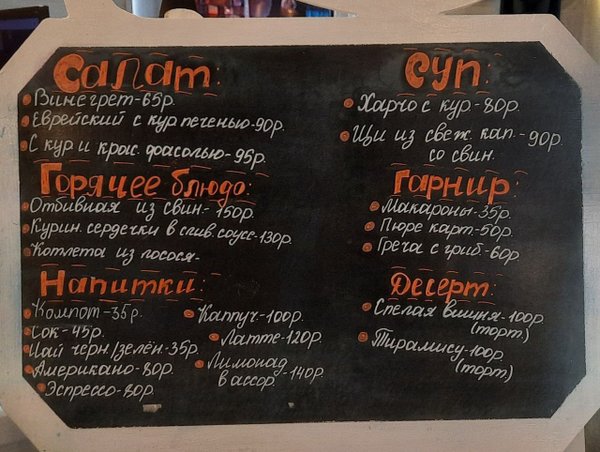 Салат:
Винегрет-65р.
Еврейский с кур печенью-90р.
С кур и крас. фасолью-95р.
Горячее блюдо:
Отбивная из свин.-150р.
Курин. сердечки в слив. соусе-130р.
Котлета из лосося-
Напитки:
Компот-35р.
Сок-45р.
Чай черн./зелён-35р
Американо-80р.
Эспрессо-80р.
Каппуч-100р.
Латте-120р.
Лимонад
в ассор. 140р
Суп:
Харчо с кур-80р.
Щи из свеж. кап.-90р.
со свин.
Гарнир:
Макароны-35р.
Пюре карт-50р.
Греча с гриб-60р.
Десерт:
Спелая вишня-100р.
(торт)
Тирамису-100р.
(торт)